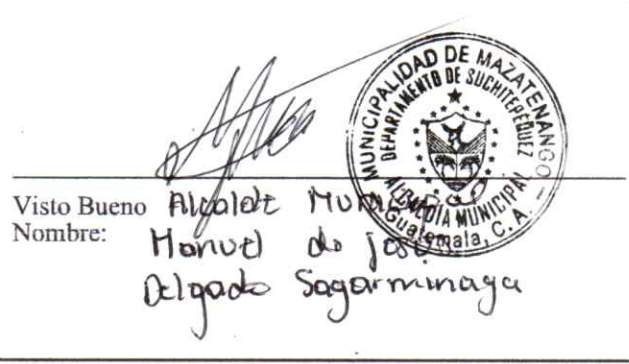 MUNICIPALIDAD DE MAZATENANGO
DEPARTAMENTO DE SUCHITEPÉQUEZ
ALCALDIA MUNICIPAL
Guatemala, C. A.
Visto Bueno Alcalde Municipal
Nombre: Manuel de José
Delgado Sagarminaga